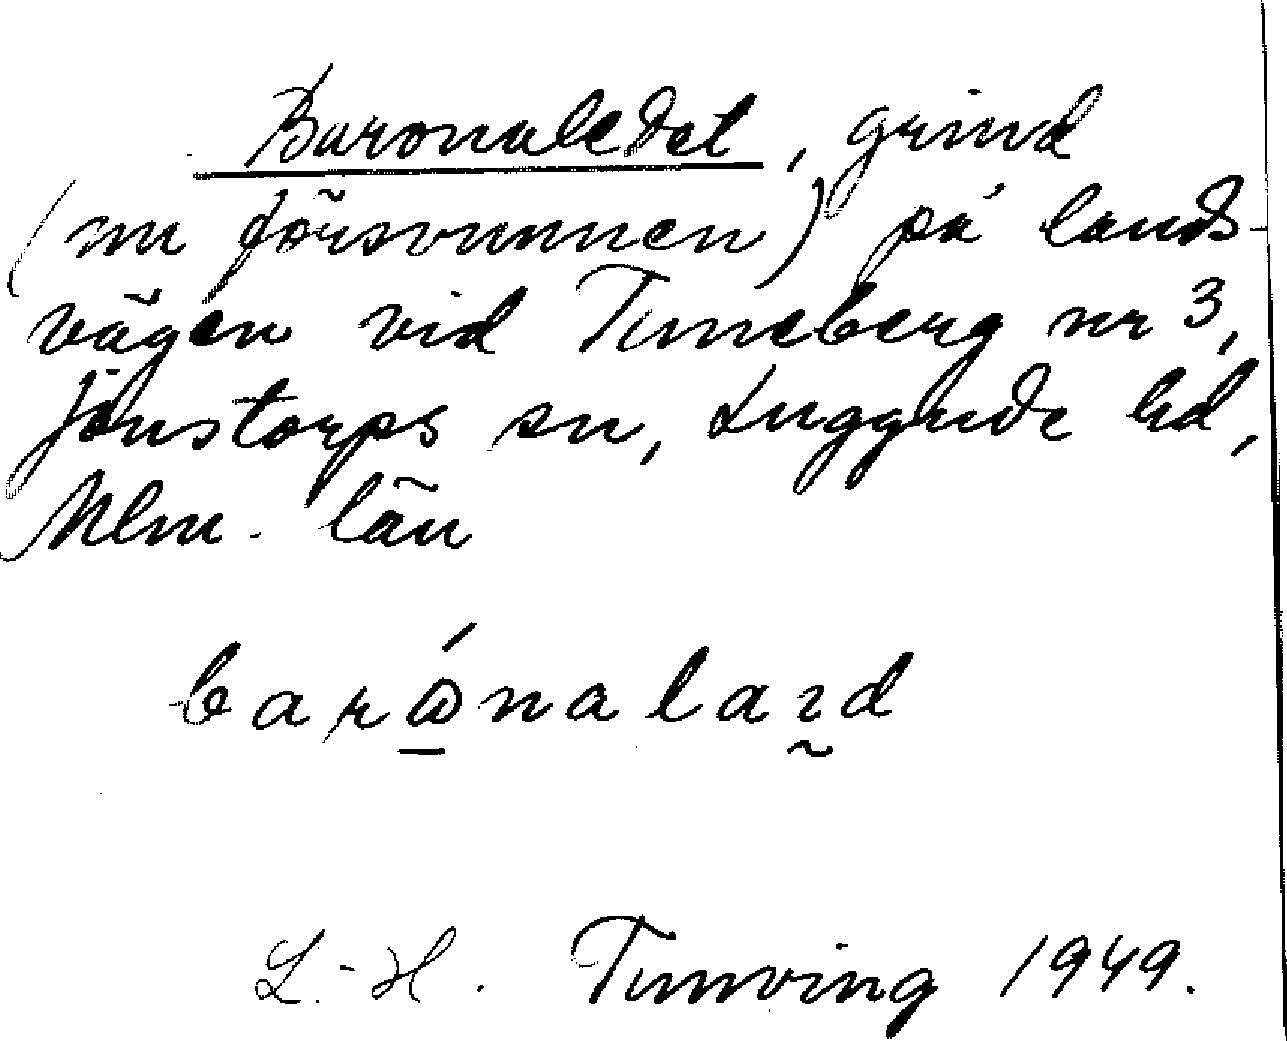 Baronaledet, grind
(nu försvunnen) på lands-
vägen vid Tuneberg nr 3,
Jonstorps sn, Luggude hd,
Mlm. län
barωnalaɪd
L.-H. Tunving 1949.